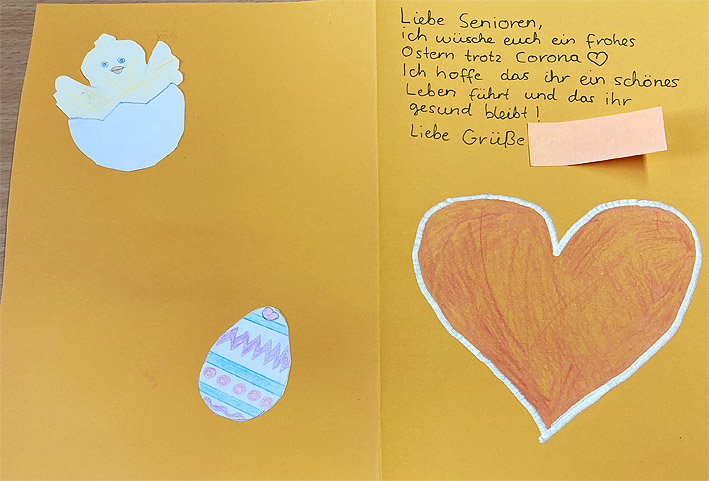 Liebe Senioren,
ich wüsche euch ein frohes
Ostern trotz Corona ♡
Ich hoffe das ihr ein schönes
Leben führt und das ihr
gesund bleibt!
Liebe Grüße